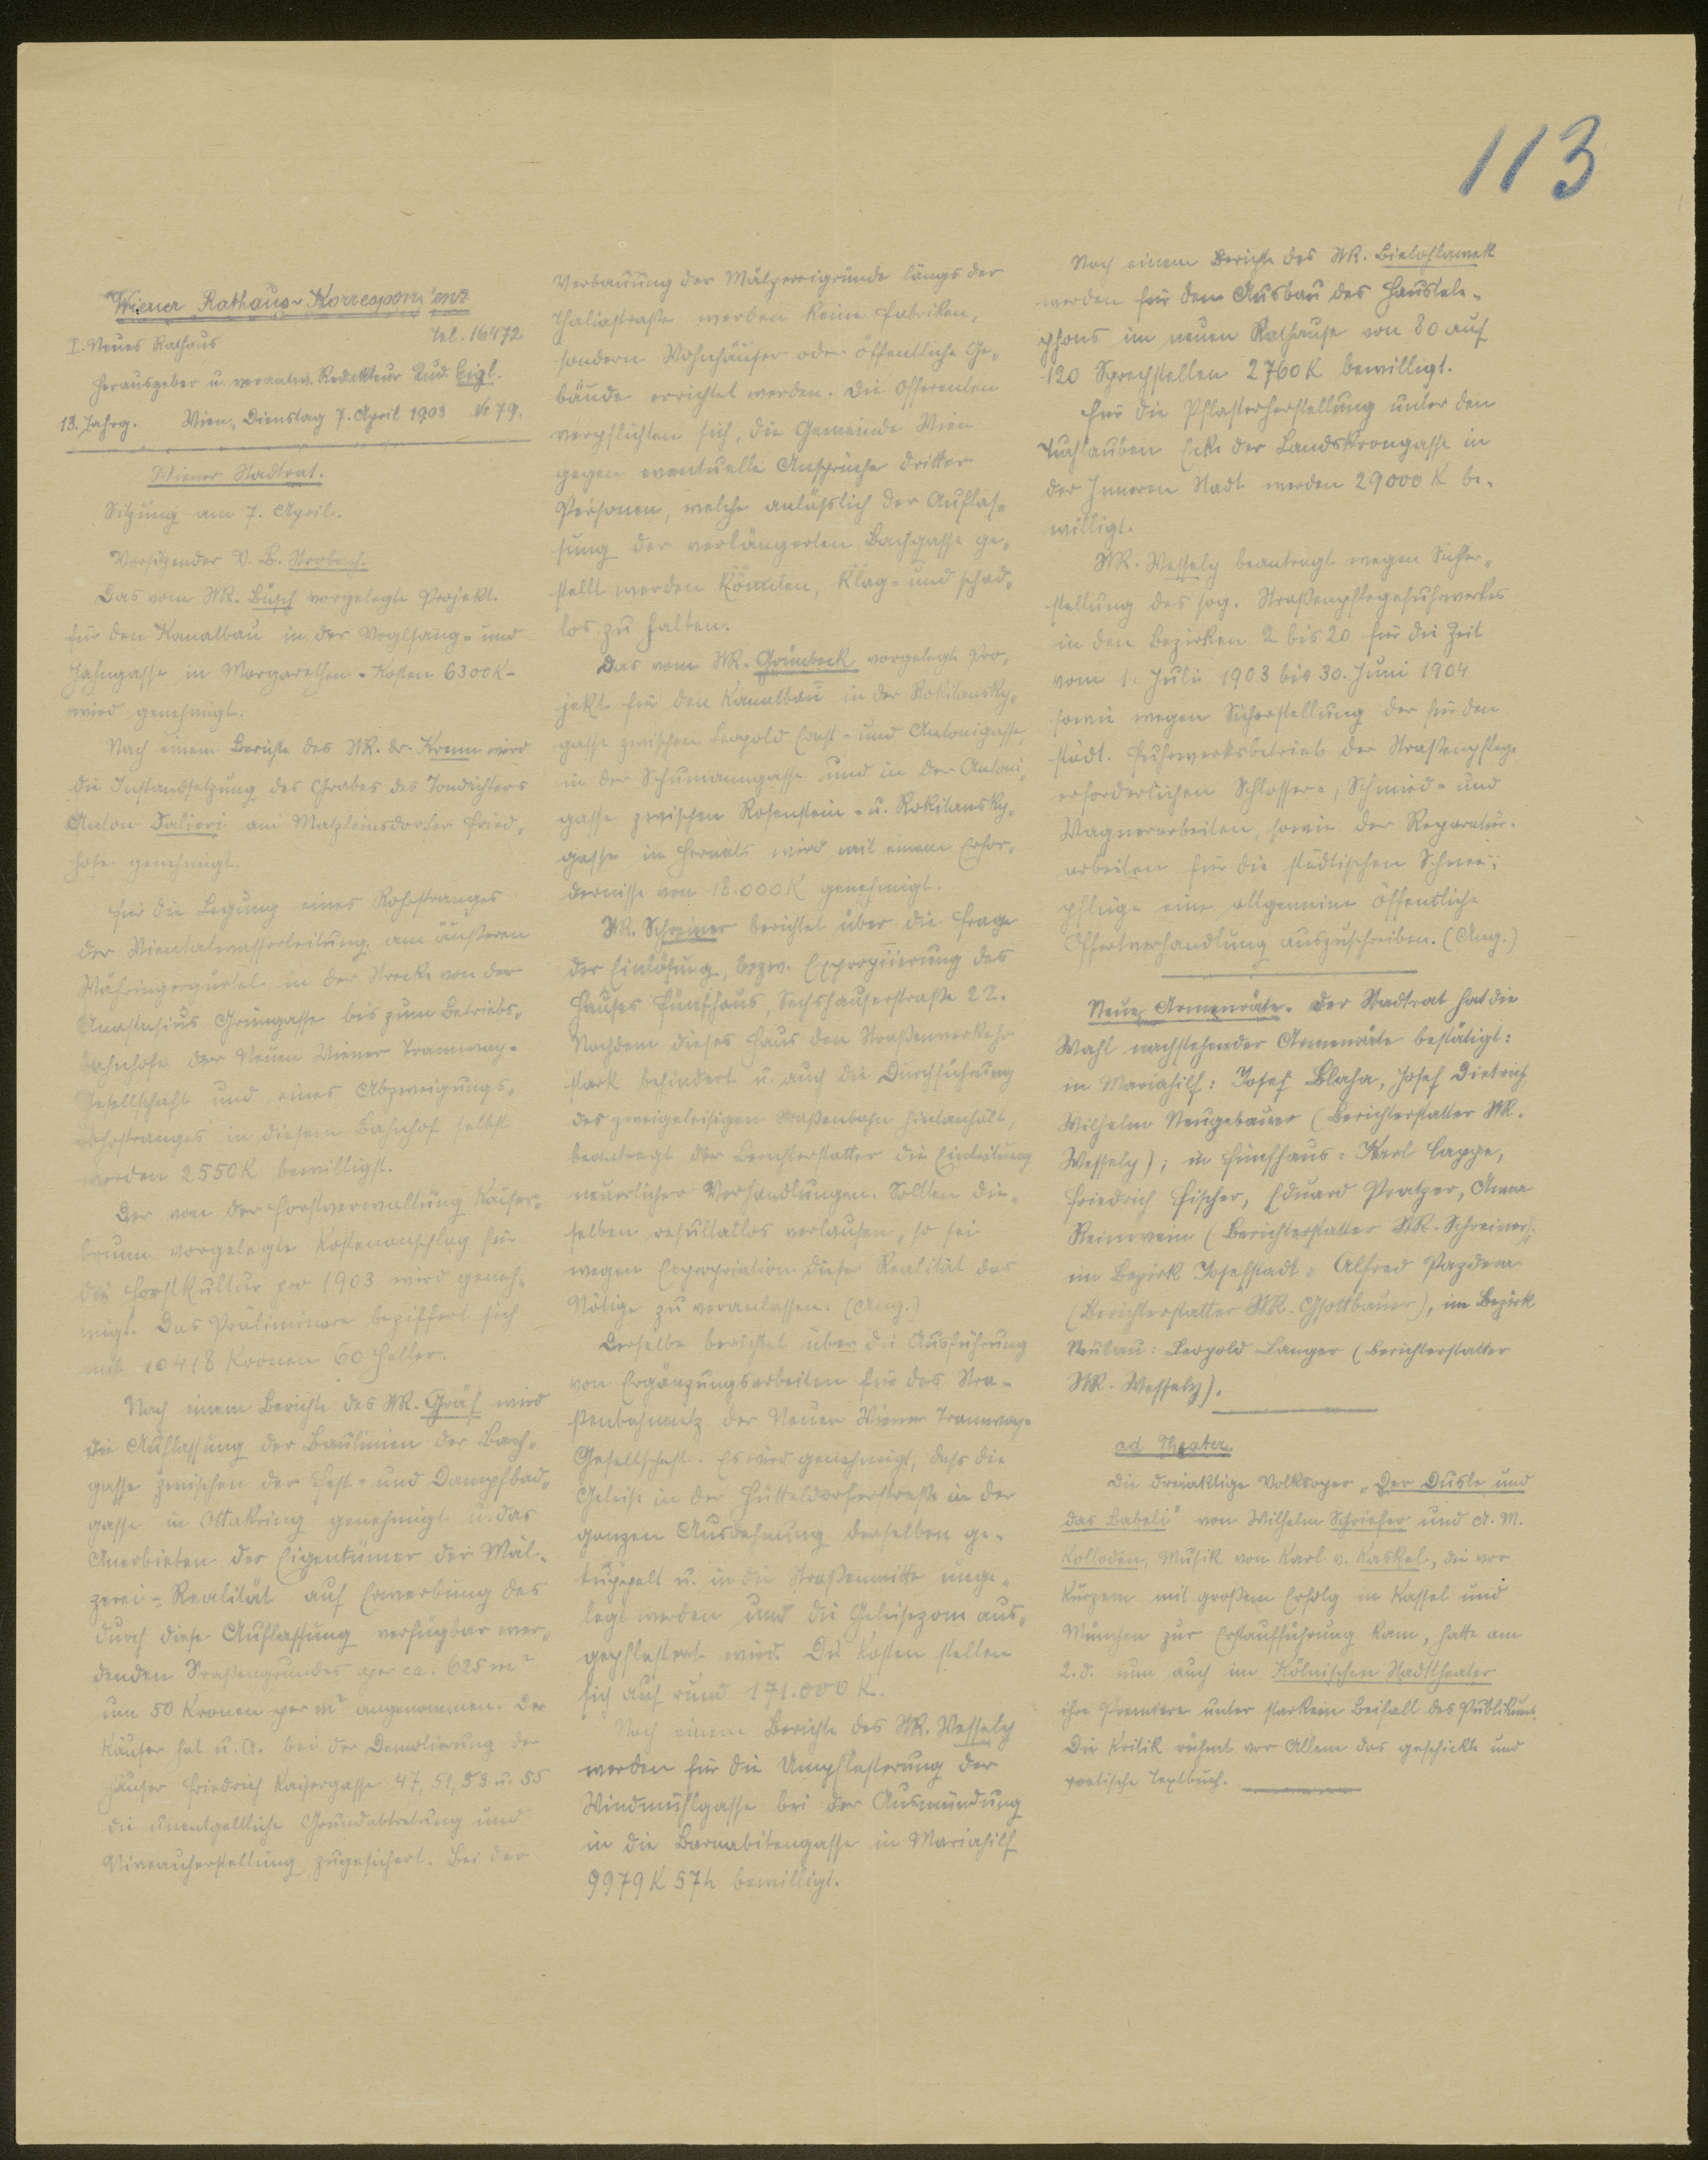 113
Wiener Rathaus-Korrespondenz
I. Neues Rathaus Tel. 16472.
Herausgeber u. verantw. Redakteur Rud. Eigl.
13. Jahrg. Wien, Dienstag 7. April 1903 Nr 79.
Wiener Stadtrat.
Sitzung am 7. April.
Vorsitzender V. B. Strobach.
Das vom StR. Büsch vorgelegte Projekt
für den Kanalbau in der Voglsang- und
Jahngasse in Margarethen - Kosten 6300 K -
wird genehmigt.
Nach einem Berichte des StR. Dr. Krenn wird
die Instandsetzung des Grabes des Tondichters
Anton Salieri am Matzleinsdorfer Fried-
hofe genehmigt.
Für die Legung eines Rohrstranges
der Wientalwasserleitung am äußeren
Währingergürtel in der Strecke von der
Anastasius Grüngasse bis zum Betriebs-
bahnhofe der Neuen Wiener Tramway-
Gesellschaft und eines Abzweigungs-
rohrstranges in diesem Bahnhof selbst
werden 2550 K bewilligt.
Der von der Forstverwaltung Kaiser-
brunn vorgelegte Kostenanschlag für
die Forstkultur pro 1903 wird geneh-
migt. Das Präliminare beziffert sich
mit 10418 Kronen 60 Heller.
Nach einem Berichte des StR. Gräf wird
die Auflassung der Baulinien der Bach-
gasse zwischen der Hest- und Dampfbad-
gasse in Ottakring genehmigt u. das
Anerbieten der Eigentümer der Mäl-
zerei-Realität auf Erwerbung des
durch diese Auflassung verfügbar wer-
denden Straßengrundes per ca. 625 m²
um 50 Kronen per m² angenommen. Der
Käufer hat u. A. bei der Demolierung der
Häuser Friedrich Kaisergasse 47, 51, 53 u. 55
die unentgeltliche Grundabtretung und
Niveauherstellung zugesichert. Bei der
Verbauung der Mälzereigründe längs der
Thaliastraße werden keine Fabriken,
sondern Wohnhäuser oder öffentliche Ge-
bäude errichtet werden. Die Offerenten
verpflichten sich, die Gemeinde Wien
gegen eventuelle Ansprüche dritter
Personen, welche anläßlich der Auflas-
sung der verlängerten Bachgasse ge-
stellt werden könnten, klag- und schad-
los zu halten.
Das vom StR. Grünbeck vorgelegte Pro-
jekt für den Kanalbau in der Rokitansky-
gasse zwischen Leopold Ernst- und Antonigasse,
in der Schumanngasse und in der Antoni-
gasse zwischen Rosenstein- u. Rokitansky-
gasse in Hernals wird mit einem Erfor-
dernisse von 18.000 K genehmigt.
StR. Schreiner berichtet über die Frage
der Einlösung, bezw. Expropriierung des
Hauses Fünfhaus, Sechshauserstraße 22.
Nachdem dieses Haus den Straßenverkehr
stark behindert u. auch die Durchführung
des zweigeleisigen Straßenbahn hintanhält,
beantragt der Berichterstatter die Einleitung
neuerlicher Verhandlungen. Sollten die-
selben resultatlos verlaufen, so sei
wegen Expropriation dieser Realität das
Nötige zu veranlassen. (Ang.)
Derselbe berichtet über die Ausführung
von Ergänzungsarbeiten für das Stra-
ßenbahnnetz der Neuen Wiener Tramway-
Gesellschaft. Es wird genehmigt, daß die
Geleise in der Hütteldorferstraße in der
ganzen Ausdehnung derselben ge-
kuppelt u. in die Straßenmitte umge-
legt werden und die Geleisezone aus-
gepflastert wird. Die Kosten stellen
sich auf rund 171.000 K.
Nach einem Berichte des StR. Wessely
werden für die Umpflasterung der
Windmühlgasse bei der Ausmündung
in die Barnabitengasse in Mariahilf
9979 K 57 h bewilligt.
Nach einem Berichte des StR. Bielohlawek
werden für den Ausbau des Haustele-
phons im neuen Rathause von 80 auf
120 Sprechstellen 2760 K bewilligt.
Für die Pflasterherstellung unter den
Tuchlauben Ecke der Landskrongasse in
der Inneren Stadt werden 29000 K be-
willigt.
StR. Wessely beantragt wegen Sicher-
stellung des sog. Straßenpflegefuhrwerkes
in den Bezirken 2 bis 20 für die Zeit
vom 1. Juli 1903 bis 30. Juni 1904
sowie wegen Sicherstellung der für den
städt. Fuhrwerksbetrieb der Straßenpflege
erforderlichen Schlosser-, Schmied- und
Wagnerarbeiten, sowie der Reparatur-
arbeiten für die städtischen Schnee-
pflüge eine allgemeine öffentliche
Offertverhandlung auszuschreiben. (Ang.)
Neue Armenräte. Der Stadtrat hat die
Wahl nachstehender Armenräte bestätigt:
in Mariahilf: Josef Blaha, Josef Dietrich,
Wilhelm Neugebauer (Berichterstatter StR.
Wessely); in Fünfhaus: Karl Cappe,
Friedrich Fischer, Eduard Pratzer, Anna
Reinwein (Berichterstatter StR. Schreiner);
im Bezirk Josefstadt: Alfred Pazdera
(Berichterstatter StR. Gsottbauer), im Bezirk
Neubau: Leopold Langer (Berichterstatter
StR. Wessely).
ad Theater.
Die dreiaktige Volksoper „Der Dusle und
das Babeli" von Wilhelm Schriefer und A. M.
Kolloden, Musik von Karl v. Kaskel, die vor
Kurzem mit großem Erfolg in Kassel und
München zur Erstaufführung kam, hatte am
2. d. nun auch im Kölnischen Stadttheater
ihre Premiere unter starkem Beifall des Publikums.
Die Kritik rühmt vor Allem das geschickte und
poetische Textbuch.